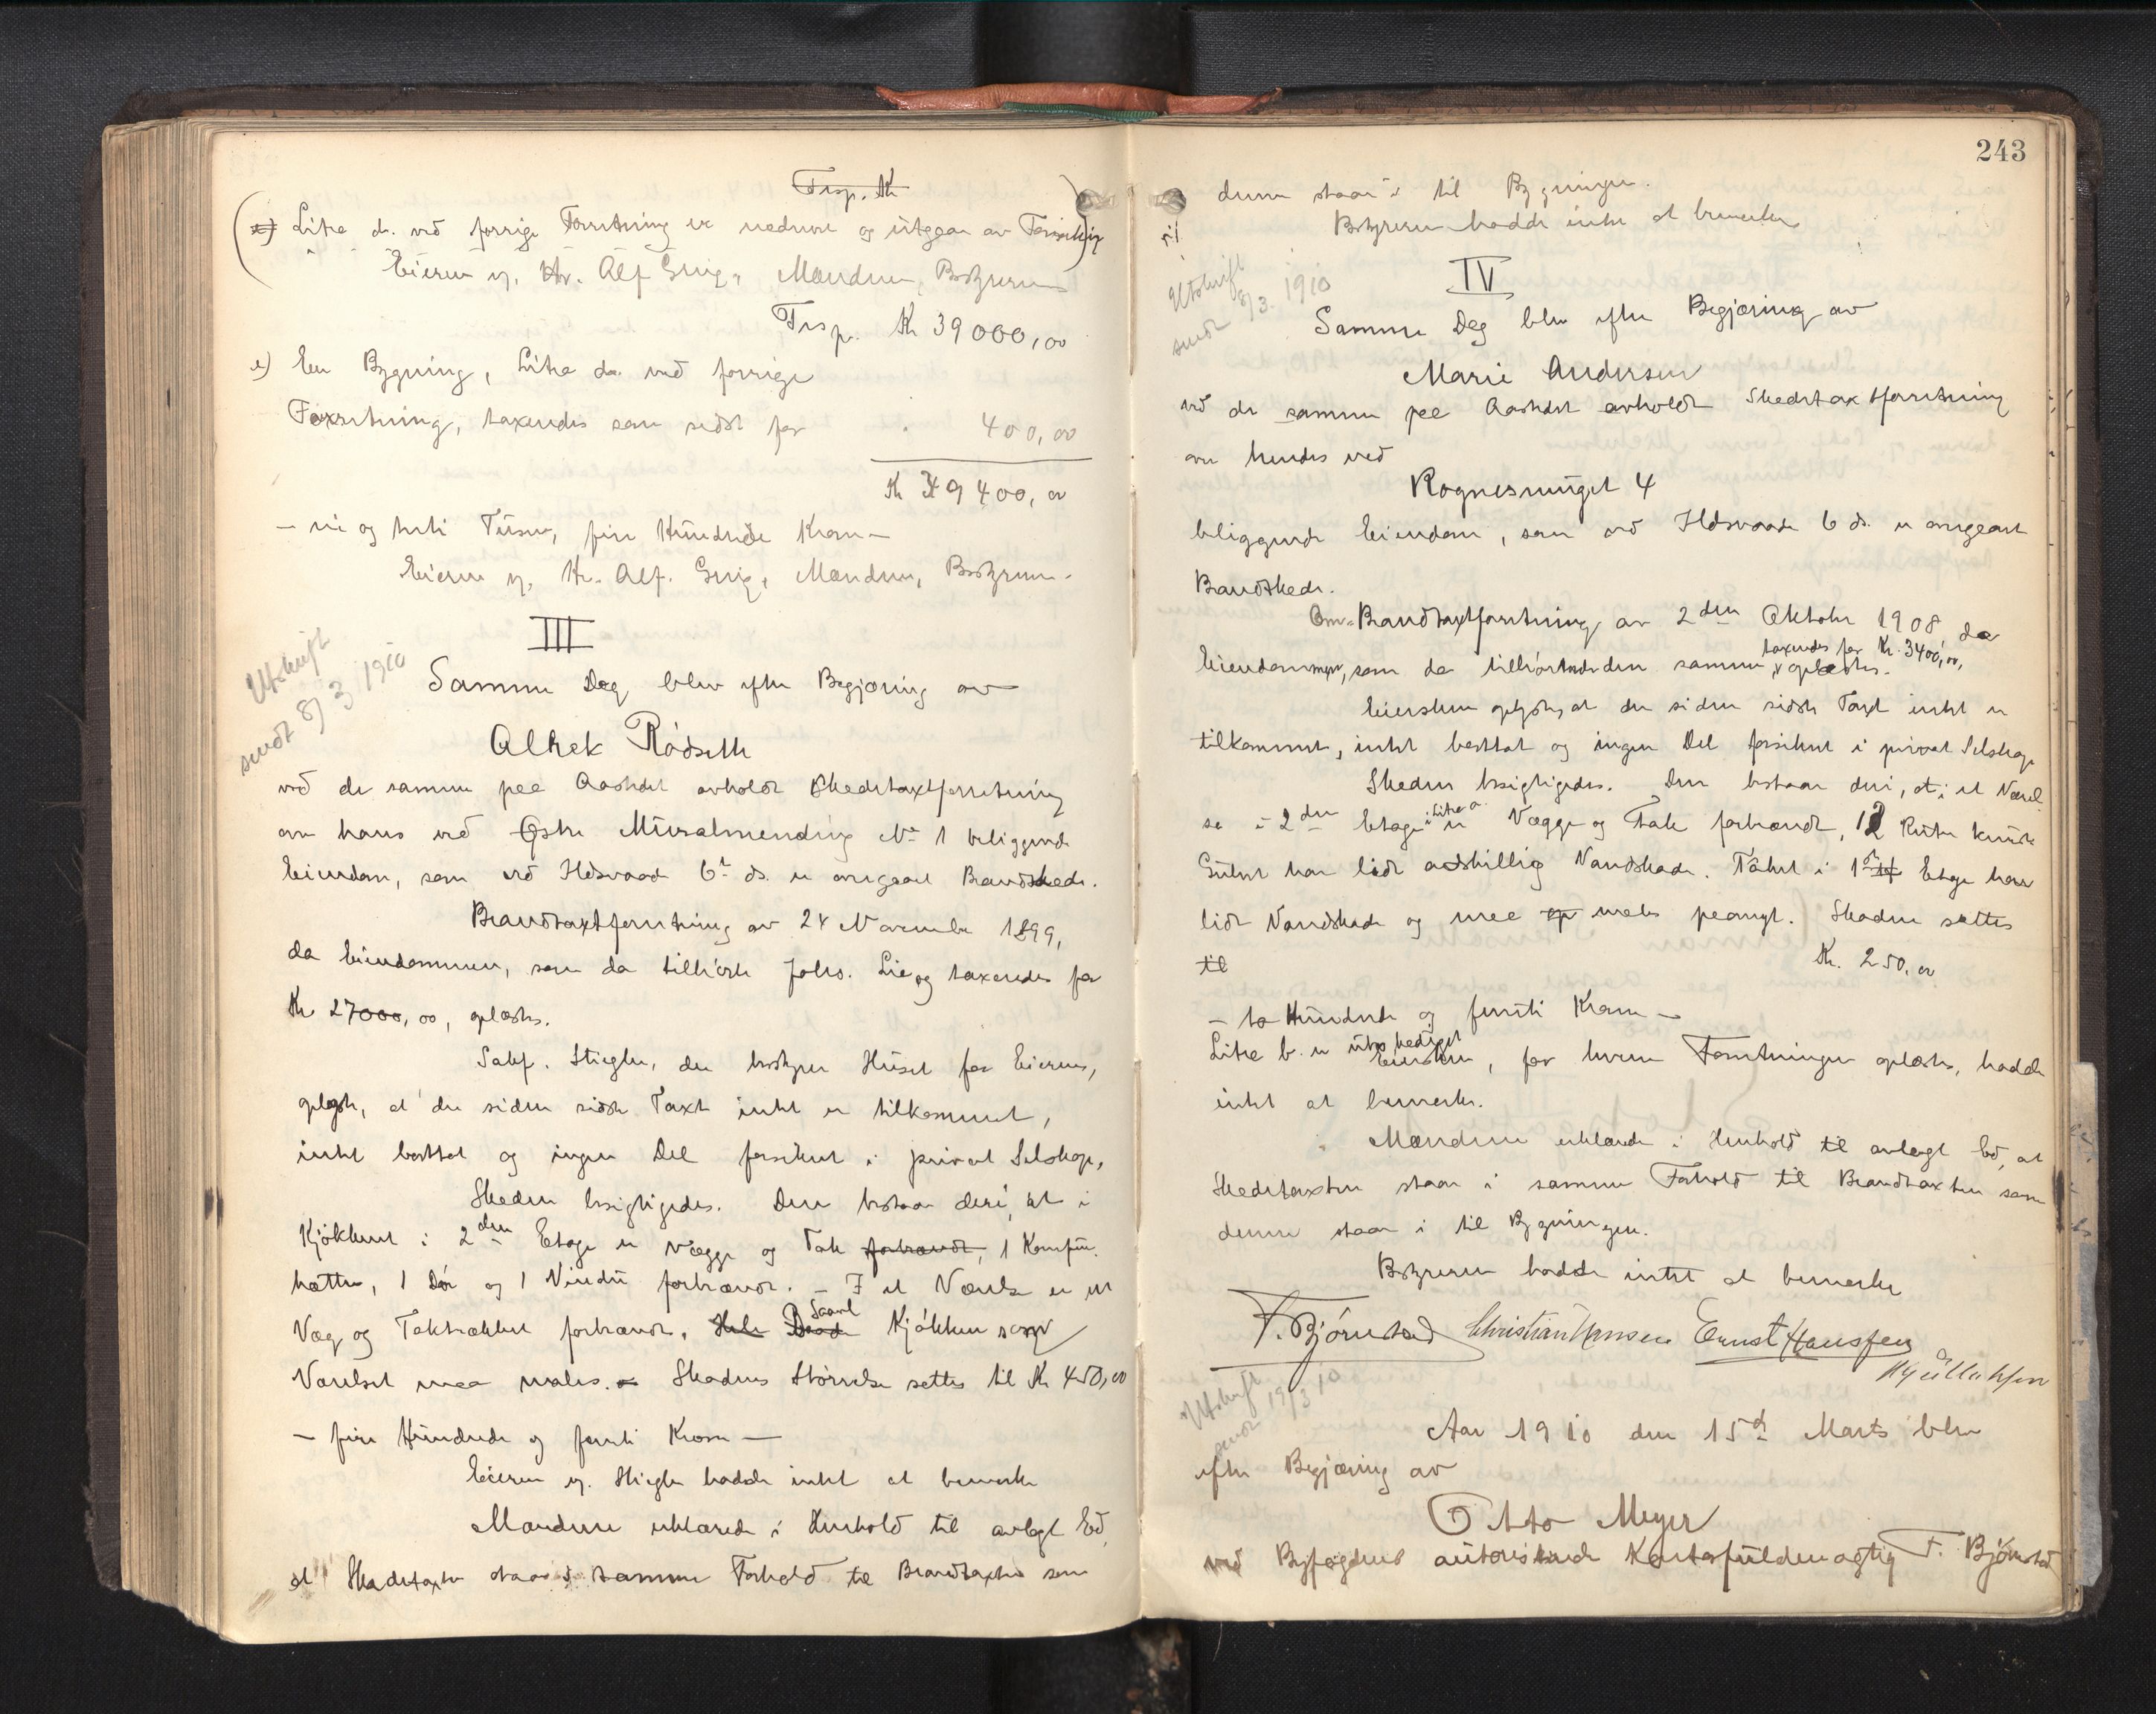 Trsp. Kr
e) Litra d. ved forrige Forretning er nedrevet og utgaar av Forsikring
Eieren v. Hr. Alf Grieg, Mændene, Bestyreren
Trsp. Kr 39000,00
e) En Bygning, Litra da. ved forrige
Forretning, taxeredes som sidst for 400,00
Kr 39400,00
– ni og treti Tusen, fire Hundrede Kron –
Eieren v. Hr. Alf. Grieg, Mændene, Bestyreren.
III
Utskrift
sendt 8/3 1910
Samme Dag blev efter Begjæring av
Alkek Rödseth
ved de samme paa Aastedet avholdt Skadetaxtforretning
over hans ved Østre Muralmending No 1 beliggende
Eiendom, som ved Ildsvaade 6te ds. er overgaaet Brandskade.
Brandtaxtforretning av 24 November 1899,
da Eiendommen, som da tilhörte Johs. Lie og taxeredes for
Kr 27000,00, oplæstes.
Sakf. Stiegler, der bestyrer Huset for Eieren,
oplyste, at der siden sidste Taxt intet er tilkommet,
intet borttat og ingen Del forsikret i privat Selskap.
Skaden besigtigedes. Den bestaar deri, at i
Kjökkenet i 2den Etage er Vægge og Tak forbrændt, 1 Komfur-
hætte, 1 Dör og 1 Vindu forbrændt. – I et Værelse er en
Væg og Taktrækket forbrændt. Hele Saavel Kjökken som
Værelset maa males. Skadens Störrelse sættes til Kr 450,00
– fire Hundrede og femti Kroner –
Eieren v. Stiegler hadde intet at bemerke
Mændene erklærede i Henhold til avlagt Ed,
at Skadetaxten staar i samme Forhold til Brandtaxten som
243
denne staar i til Bygningen.
Bestyreren hadde intet at bemerke
IV
Utskrift
sendt 8/3. 1910
Samme Dag blev efter Begjæring av
Marie Andersen
ved de samme paa Aastedet avholdt Skadetaxtforretning
over hendes ved
Rognesmuget 4
beliggende Eiendom, som ved Ildsvaade 6 ds. er overgaaet
Brandskade.
Om-Brandtaxtforretning av 2den Oktober 1908, da
Eiendommen, som da tilhörte den samme, taxeredes for Kr. 3400,00, oplæstes.
Eiersken oplyste, at der siden sidste Taxt intet er
tilkommet, intet borttat og ingen Del forsikret i privat Selskap
Skaden besigtigedes. Den bestaar deri, at i et Værel-
se i 2den Etage i Litra a. er Vægge og Tak forbrændt, 12 Ruter knust
Gulvet har lidt adskillig Vandskade. Taket i 1ste Etage har
lidt Vandskade og maa males paanyt. Skaden sættes
til Kr. 250,00
– to Hundrede og femti Kroner –
Litra b. er ubeskadiget
Eiersken, for hvem Forretningen oplæstes, hadde
intet at bemerke.
Mændene erklærede i Henhold til avlagt Ed, at
Skadetaxten staar i samme Forhold til Brandtaxten som
denne staar i til Bygningen.
Bestyreren hadde intet at bemerke
F. Björnstad Christian Hansen Ernst Hansen
Utskrift
sendt 19/3 10
Aar 1910 den 15de Marts blev
efter Begjæring av
Otto Meyer
ved Byfogdens autoriserede Kontorfuldmægtig F. Björnstad